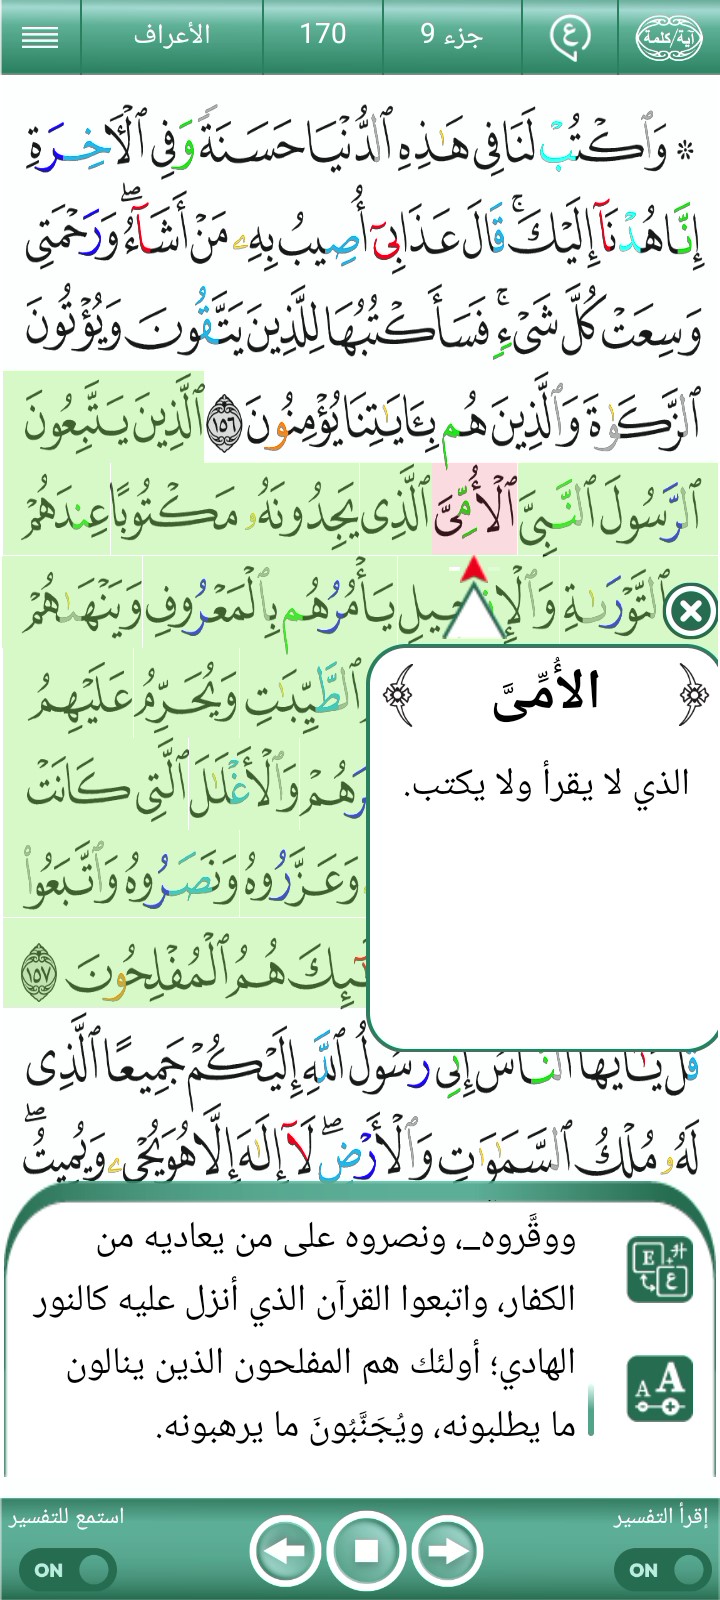 آية/كلمة ع جزء 9 170 الأعراف
* وَٱكْتُبْ لَنَا فِى هَـٰذِهِ ٱلدُّنْيَا حَسَنَةً وَفِى ٱلْـَٔاخِرَةِ
إِنَّا هُدْنَآ إِلَيْكَ ۚ قَالَ عَذَابِىٓ أُصِيبُ بِهِۦ مَنْ أَشَآءُ ۖ وَرَحْمَتِى
وَسِعَتْ كُلَّ شَىْءٍ ۚ فَسَأَكْتُبُهَا لِلَّذِينَ يَتَّقُونَ وَيُؤْتُونَ
ٱلزَّكَوٰةَ وَٱلَّذِينَ هُم بِـَٔايَـٰتِنَا يُؤْمِنُونَ ١٥٦ ٱلَّذِينَ يَتَّبِعُونَ
ٱلرَّسُولَ ٱلنَّبِىَّ ٱلْأُمِّىَّ ٱلَّذِى يَجِدُونَهُۥ مَكْتُوبًا عِندَهُمْ
ٱلتَّوْرَىٰةِ وَٱلْإِنجِيلِ يَأْمُرُهُم بِٱلْمَعْرُوفِ وَيَنْهَىٰهُمْ
ٱلطَّيِّبَـٰتِ وَيُحَرِّمُ عَلَيْهِمُ
وَٱلْأَغْلَـٰلَ ٱلَّتِى كَانَتْ
وَعَزَّرُوهُ وَنَصَرُوهُ وَٱتَّبَعُوا۟
هُمُ ٱلْمُفْلِحُونَ ١٥٧
الأُمِّىَّ
الذي لا يقرأ ولا يكتب.
قُلْ يَـٰٓأَيُّهَا ٱلنَّاسُ إِنِّى رَسُولُ ٱللَّهِ إِلَيْكُمْ جَمِيعًا ٱلَّذِى
لَهُۥ مُلْكُ ٱلسَّمَـٰوَٰتِ وَٱلْأَرْضِ ۖ لَآ إِلَـٰهَ إِلَّا هُوَ يُحْىِۦ وَيُمِيتُ ۖ
ووقَّروه_، ونصروه على من يعاديه من
الكفار، واتبعوا القرآن الذي أنزل عليه كالنور
الهادي؛ أولئك هم المفلحون الذين ينالون
ما يطلبونه، ويُجَنَّبُونَ ما يرهبونه.
إقرأ التفسير استمع للتفسير
ON ON